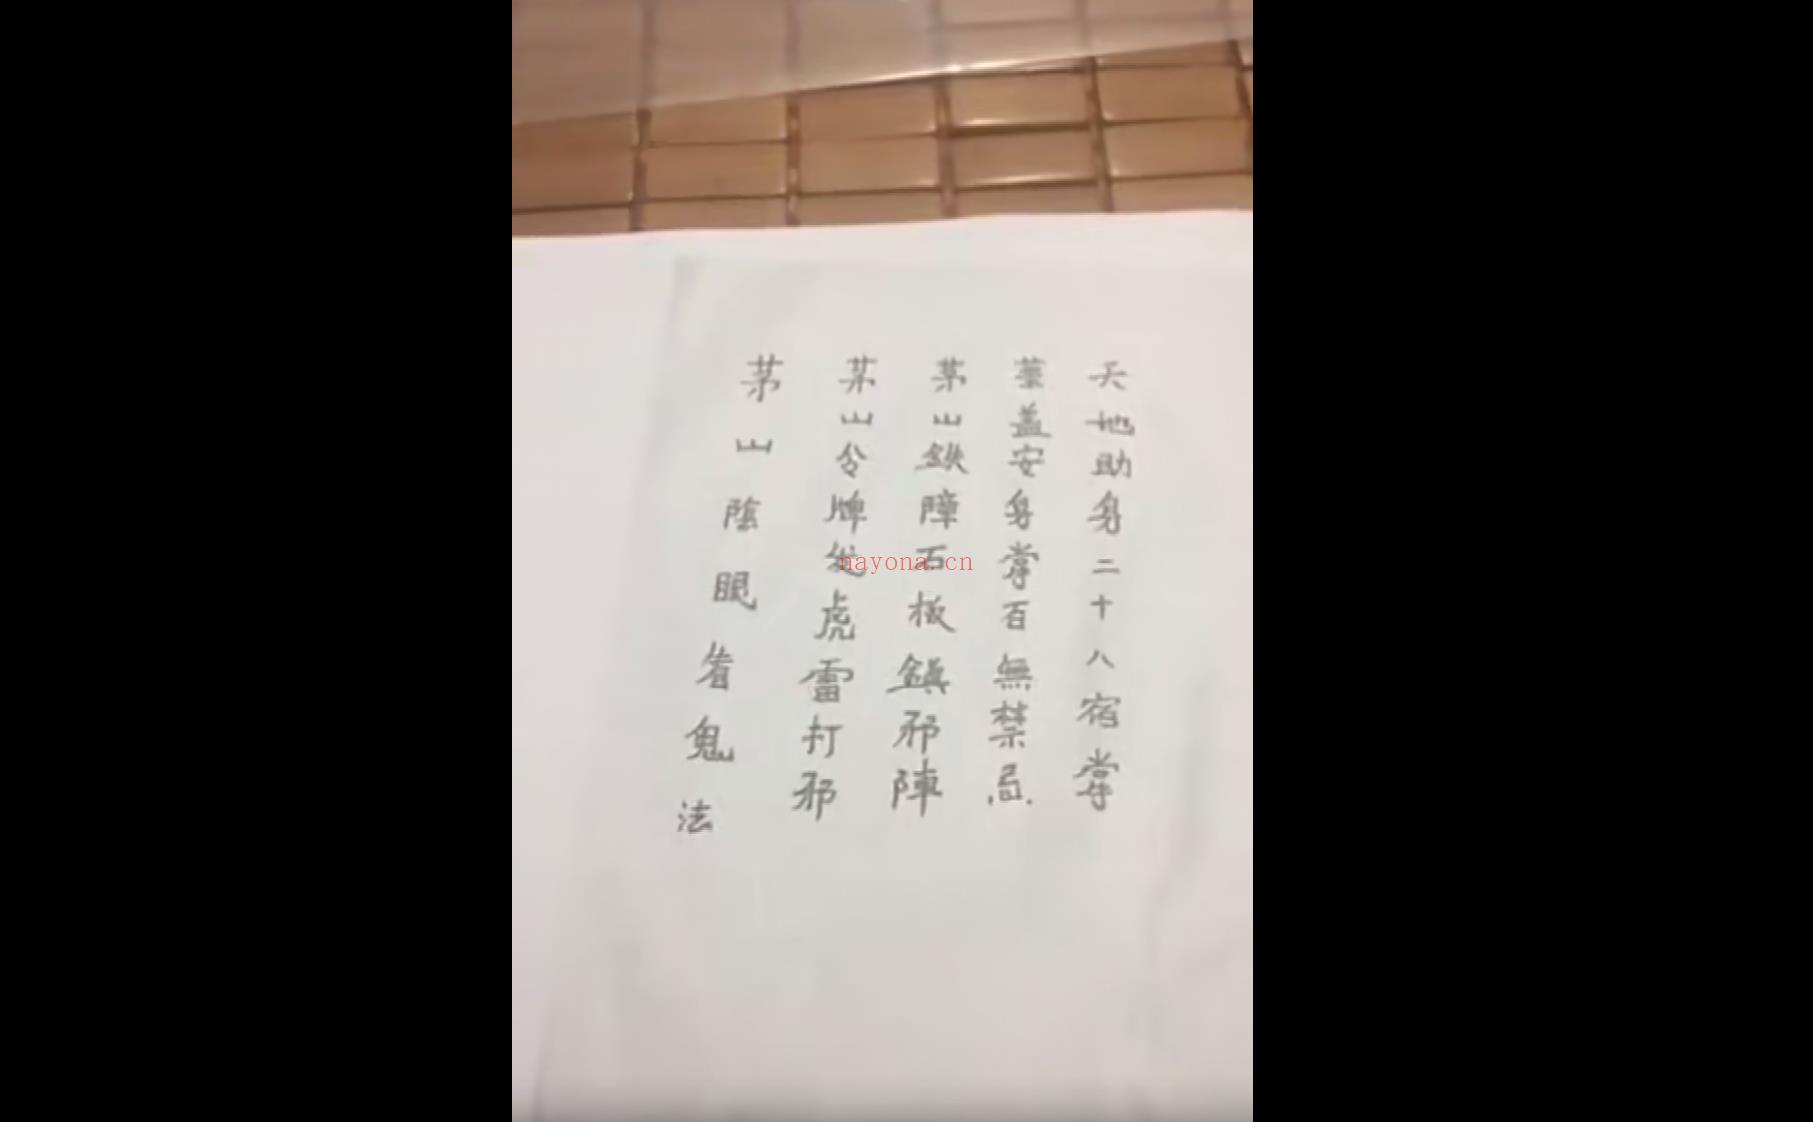 天地助身二十八宿掌
華蓋安身掌百無禁忌
茅山鉄障石板鎮邪陣
茅山令牌虎雷打邪
茅山陰眼看鬼法
nayona.cn